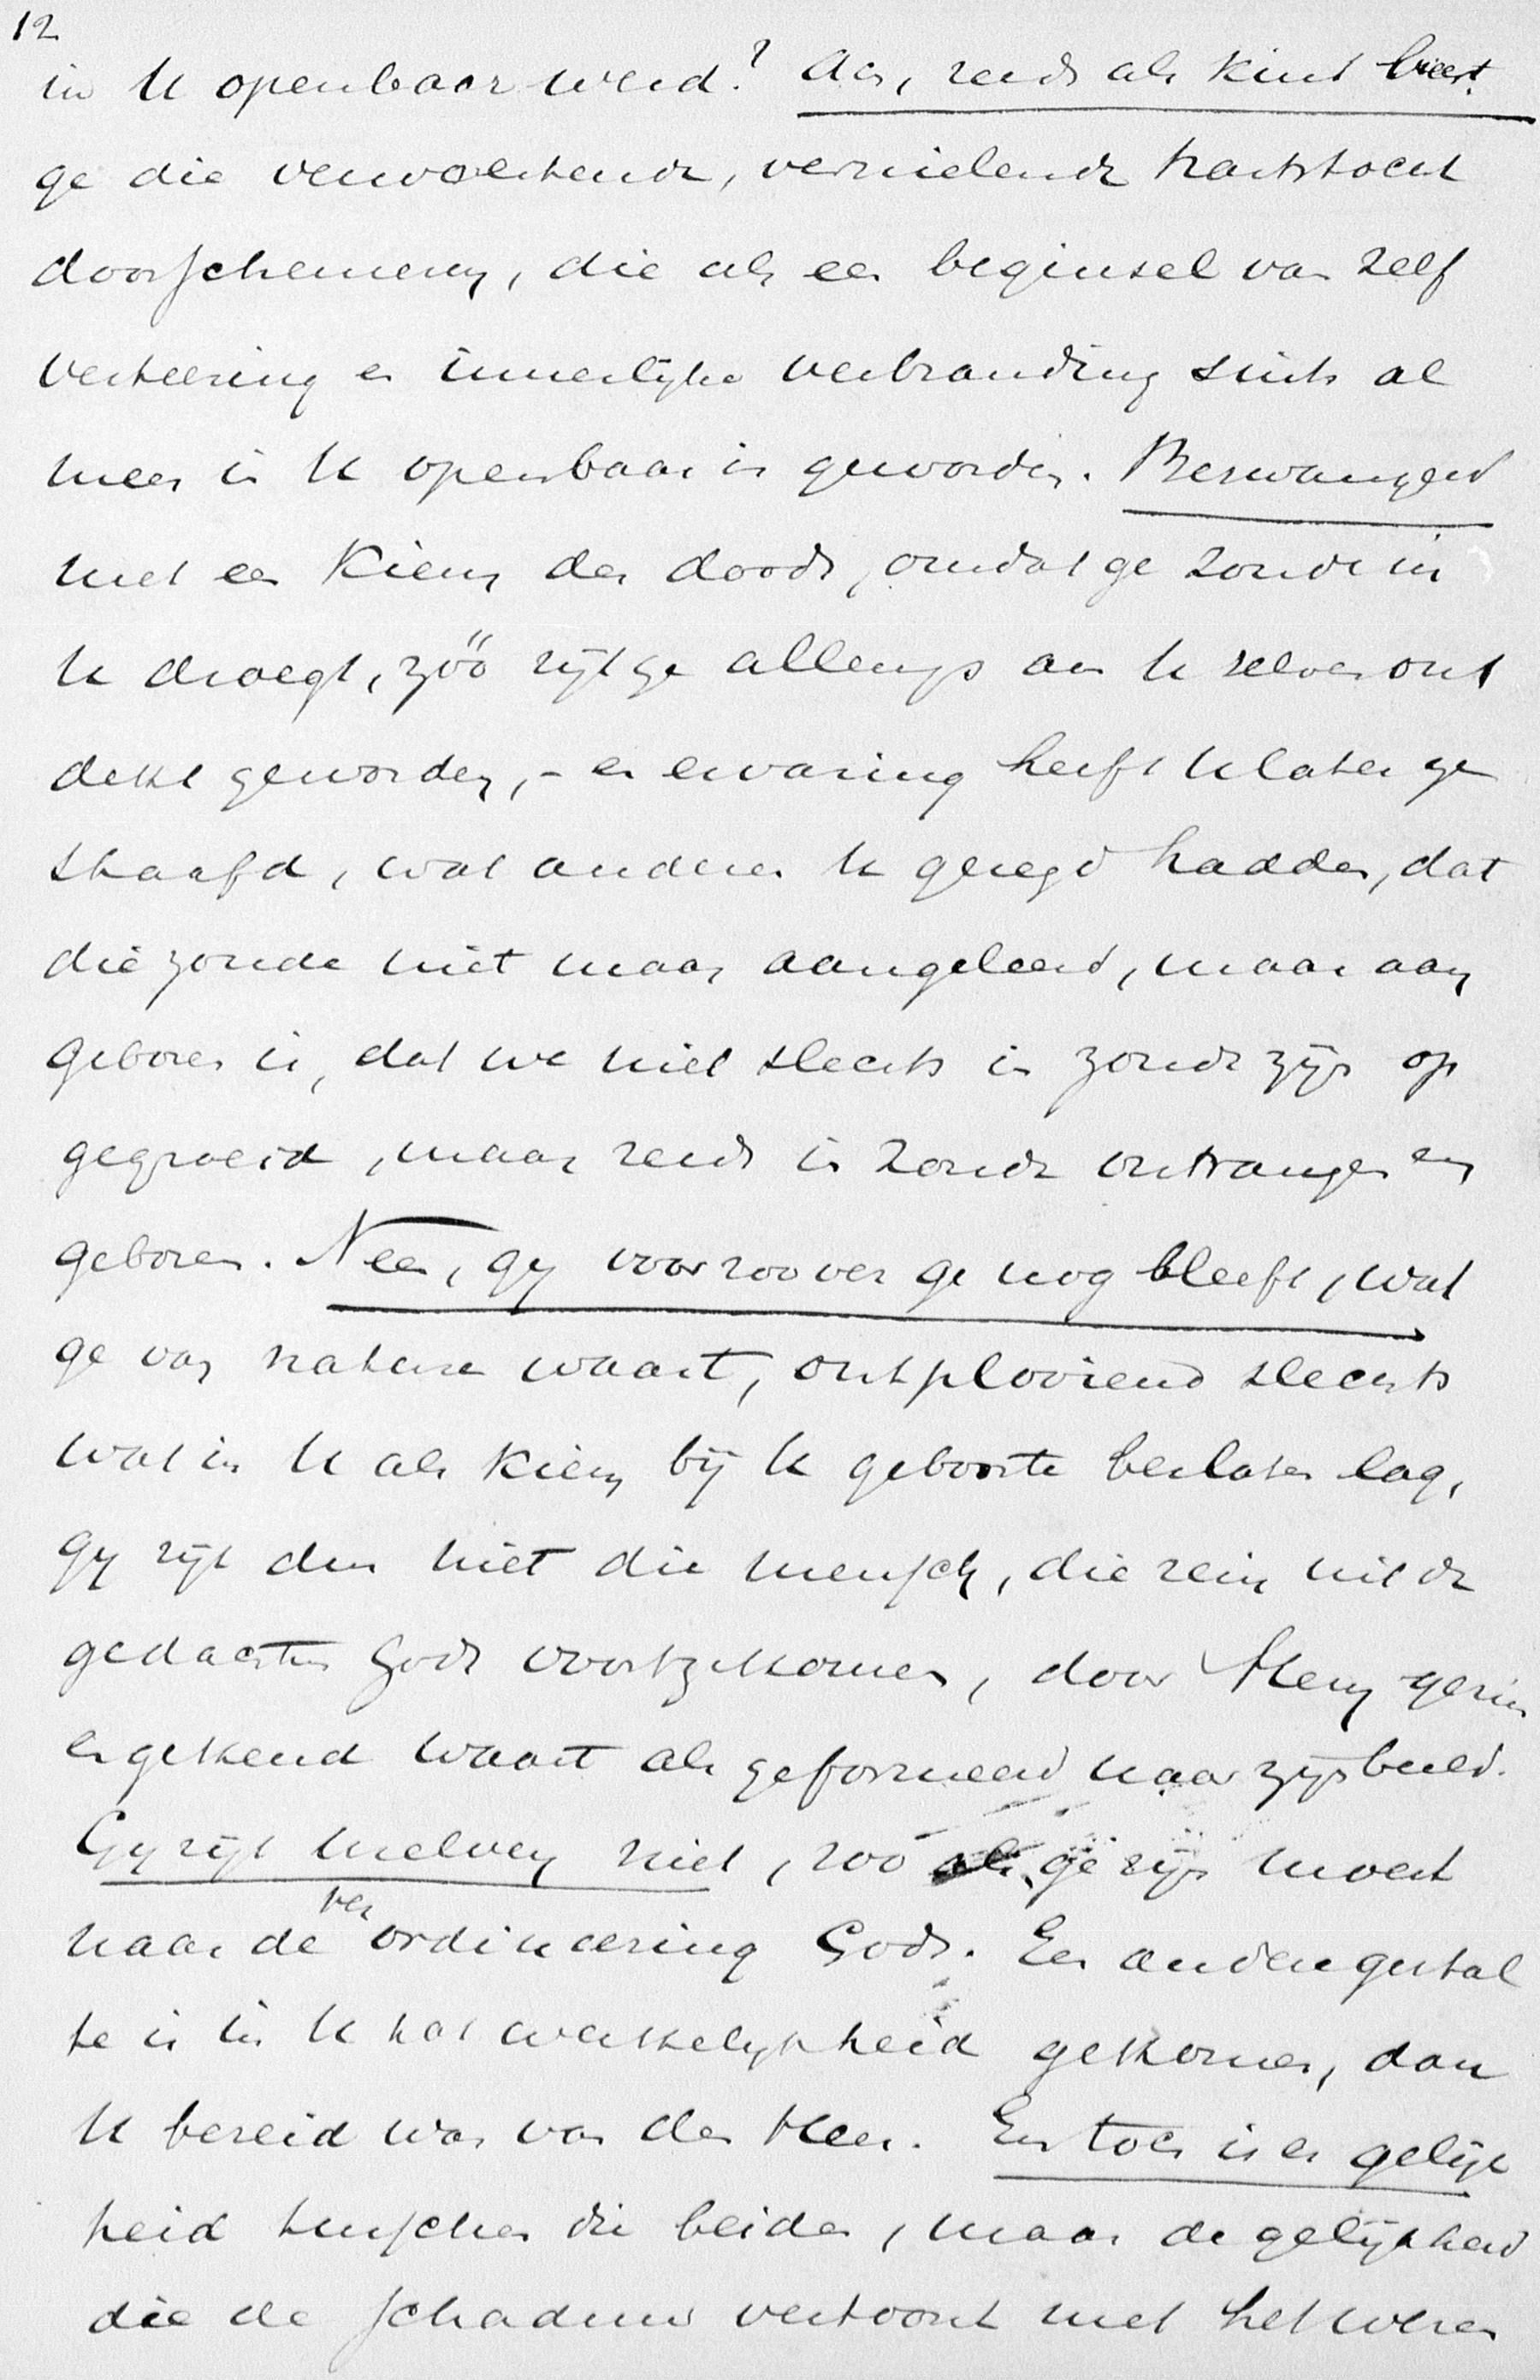 12
in U openbaar werd? Ach, reeds als kind liet
ge die verwoestende, vernielende hartstocht
doorschemeren, die als een beginsel van zelf
verteering en innerlijke verbranding sinds al
meer in U openbaar is geworden. Bezwangerd
met een kiem des doods, omdat ge zonde in
U draagt, zóó zijt ge allengs aan U zelven ont
dekt geworden, - en ervaring heeft U later ge
staafd, wat anderen U gezegd hadden, dat
die zonde niet maar aangeleerd, maar aan
geboren is, dat we niet slechts in zonde zijn op
gegroeid, maar reeds in zonde ontvangen en
geboren. Neen, gy voor zoover ge nog bleeft, wat
ge van nature waart, ontplooiend slechts
wat in U als kiem bij U geboorte besloten lag,
gy zijt dus niet die mensch, die rein uit de
gedachten Gods voortgekomen, door Hem gezien
en gekend waart als geformeerd naar zijn beeld.
Gy zijt meloen niet, zoo ge zijn moest
naar de verordineering Gods. Een andere gestal
te is in U tot werkelykheid gekomen, dan
U bereid was van den Heer. En toch is er gelijk
heid tusschen die beiden, maar de gelijkheid
die de schaduw vertoont met het wezen